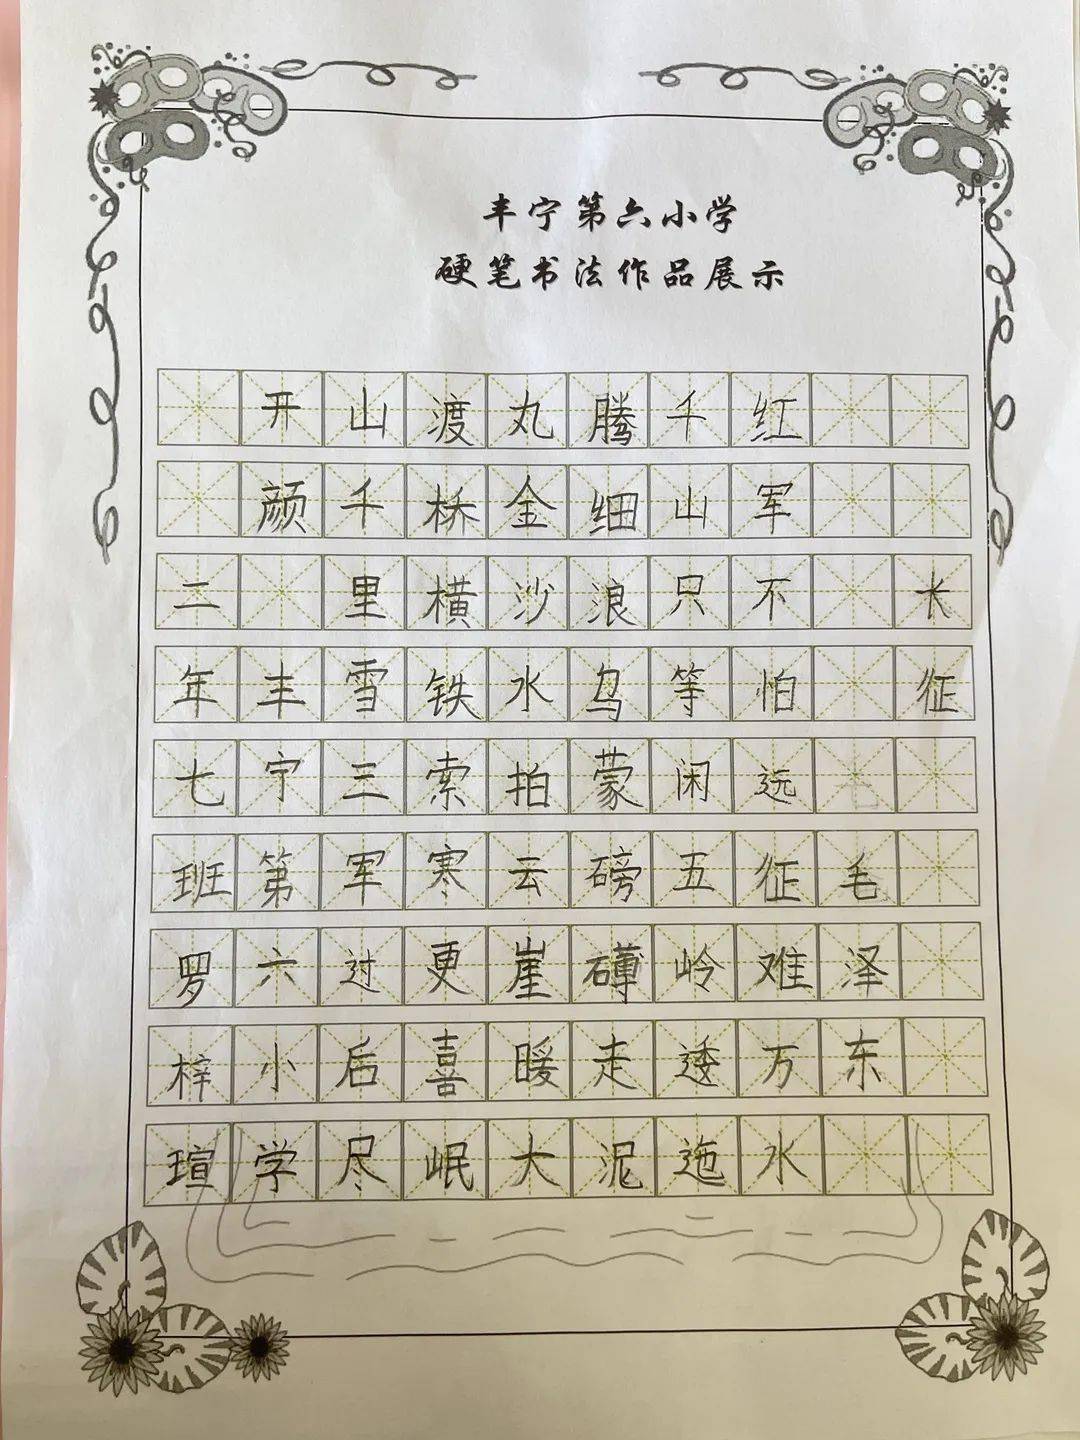 丰宁第六小学
硬笔书法作品展示
长征
毛泽东
红军不怕远征难万水
千山只等闲五岭逶迤
腾细浪乌蒙磅礴走泥
丸金沙水拍云崖暖大
渡桥横铁索寒更喜岷
山千里雪三军过后尽
开颜 丰宁第六小学
二年七班罗梓瑄